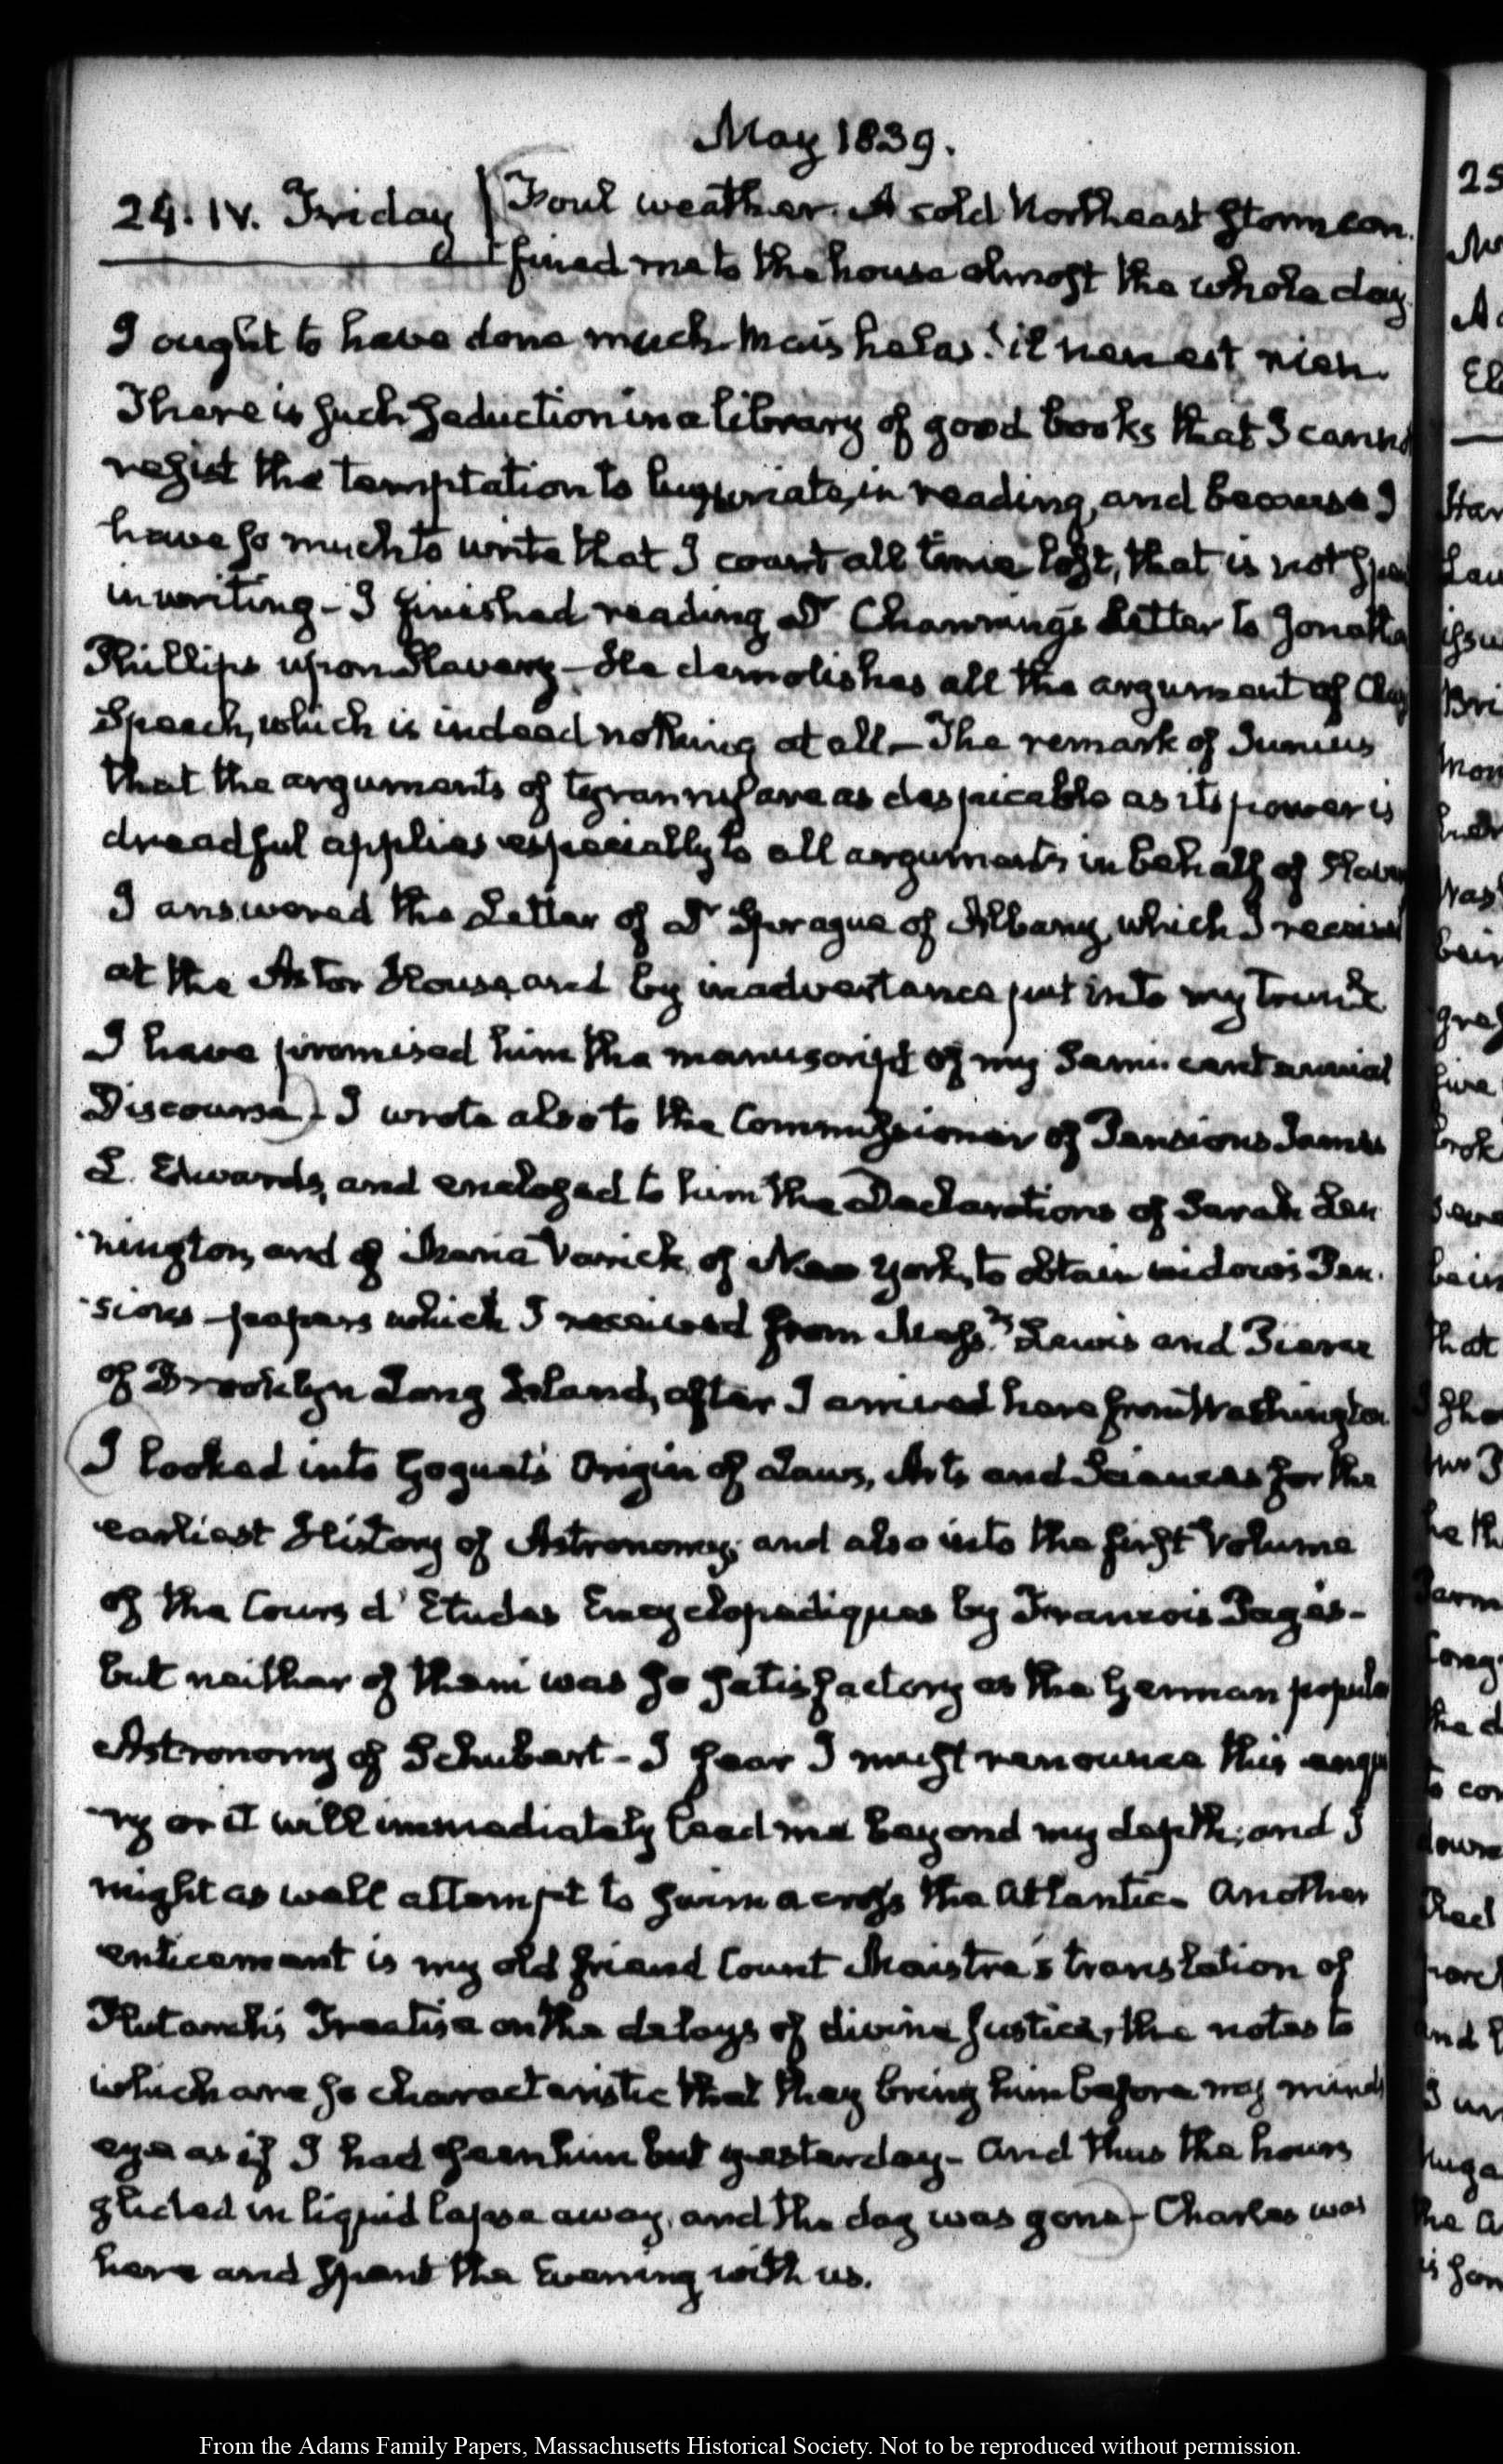 May 1839.
24. IV. Friday Foul weather. A cold Northeast Storm con-
fined me to the house almost the whole day.
I ought to have done much. Mais helas! il n'en est rien.
There is such seduction in a library of good books that I cannot
resist the temptation to luxuriate in reading, and because I
have so much to write that I count all time lost, that is not spent
in writing - I finished reading Dr Channing's Letter to Jonathan
Phillips upon Slavery - He demolishes all the argument of Clay's
Speech, which is indeed nothing at all - The remark of Junius
that the arguments of tyranny are as despicable as its power is
dreadful applies especially to all arguments in behalf of Slavery
I answered the Letter of Dr Sprague of Albany, which I received
at the Astor House, and by inadvertance put into my trunk
I have promised him the manuscript of my Semi-centennial
Discourse - I wrote also to the Commissioner of Pensions James
L. Edwards, and enclosed to him the Declarations of Sarah Len-
nington, and of Maria Varrick, of New York, to obtain widow's Pen-
sions - papers which I received from Messrs Lewis and Pierce
of Brooklyn Long Island, after I arrived here from Washington
I looked into Goguet's Origin of Laws, Arts and Sciences for the
earliest History of Astronomy; and also into the first Volume
of the Cours d'Etudes Encyclopediques by Francois Pagès -
but neither of them was so satisfactory as the German popular
Astronomy of Schubert - I fear I must renounce this enqui-
ry or it will immediately lead me beyond my depth; and I
might as well attempt to swim across the Atlantic. Another
enticement is my old friend Count Maistre's translation of
Plutarch's Treatise on the delays of divine Justice, the notes to
which are so characteristic that they bring him before my mind's
eye as if I had seen him but yesterday - And thus the hours
glided in liquid lapse away, and the day was gone - Charles was
here and spent the Evening with us.
25
From the Adams Family Papers, Massachusetts Historical Society. Not to be reproduced without permission.